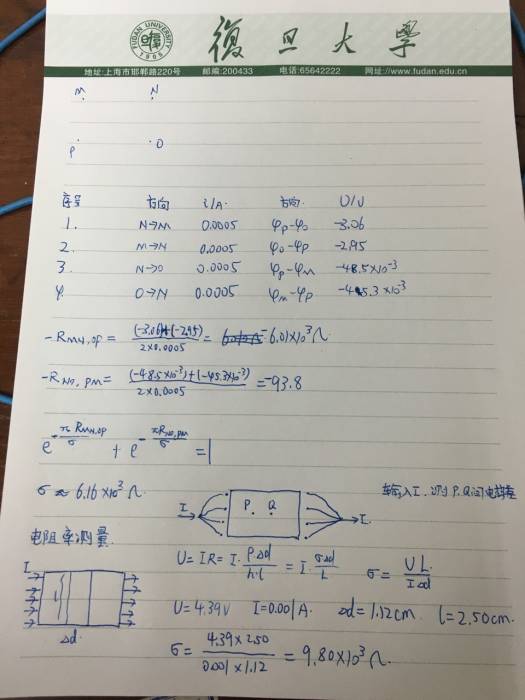 復旦大學
FUDAN UNIVERSITY
1905
地址:上海市邯郸路220号 邮编:200433 电话:65642222 网址://www.fudan.edu.cn
M N
P O
序号 方向 I/A. 方向. U/V
1. N→M 0.0005 φp-φo -3.06
2. M→N 0.0005 φo-φp -2.95
3. N→O 0.0005 φp-φm -48.5×10⁻³
4. O→N 0.0005 φm-φp -45.3×10⁻³
-R_MN,OP = (-3.06)+(-2.95) / 2×0.0005 = -6.01×10³Ω
-R_NO,PM = (-48.5×10⁻³)+(-45.3×10⁻³) / 2×0.0005 = -93.8
e^(-πR_MN,OP/σ) + e^(-πR_NO,PM/σ) = 1
σ ≈ 6.16×10³Ω.
I P Q I.
输入I.测P.Q间电势差
电阻率测量
I l Δd.
U = IR = I·ρΔd/h·l = I·σΔd/L σ = UL/IΔd
U=4.39V I=0.001A. Δd=1.12cm. l=2.50cm.
σ = 4.39×2.50 / 0.001×1.12 = 9.80×10³Ω.